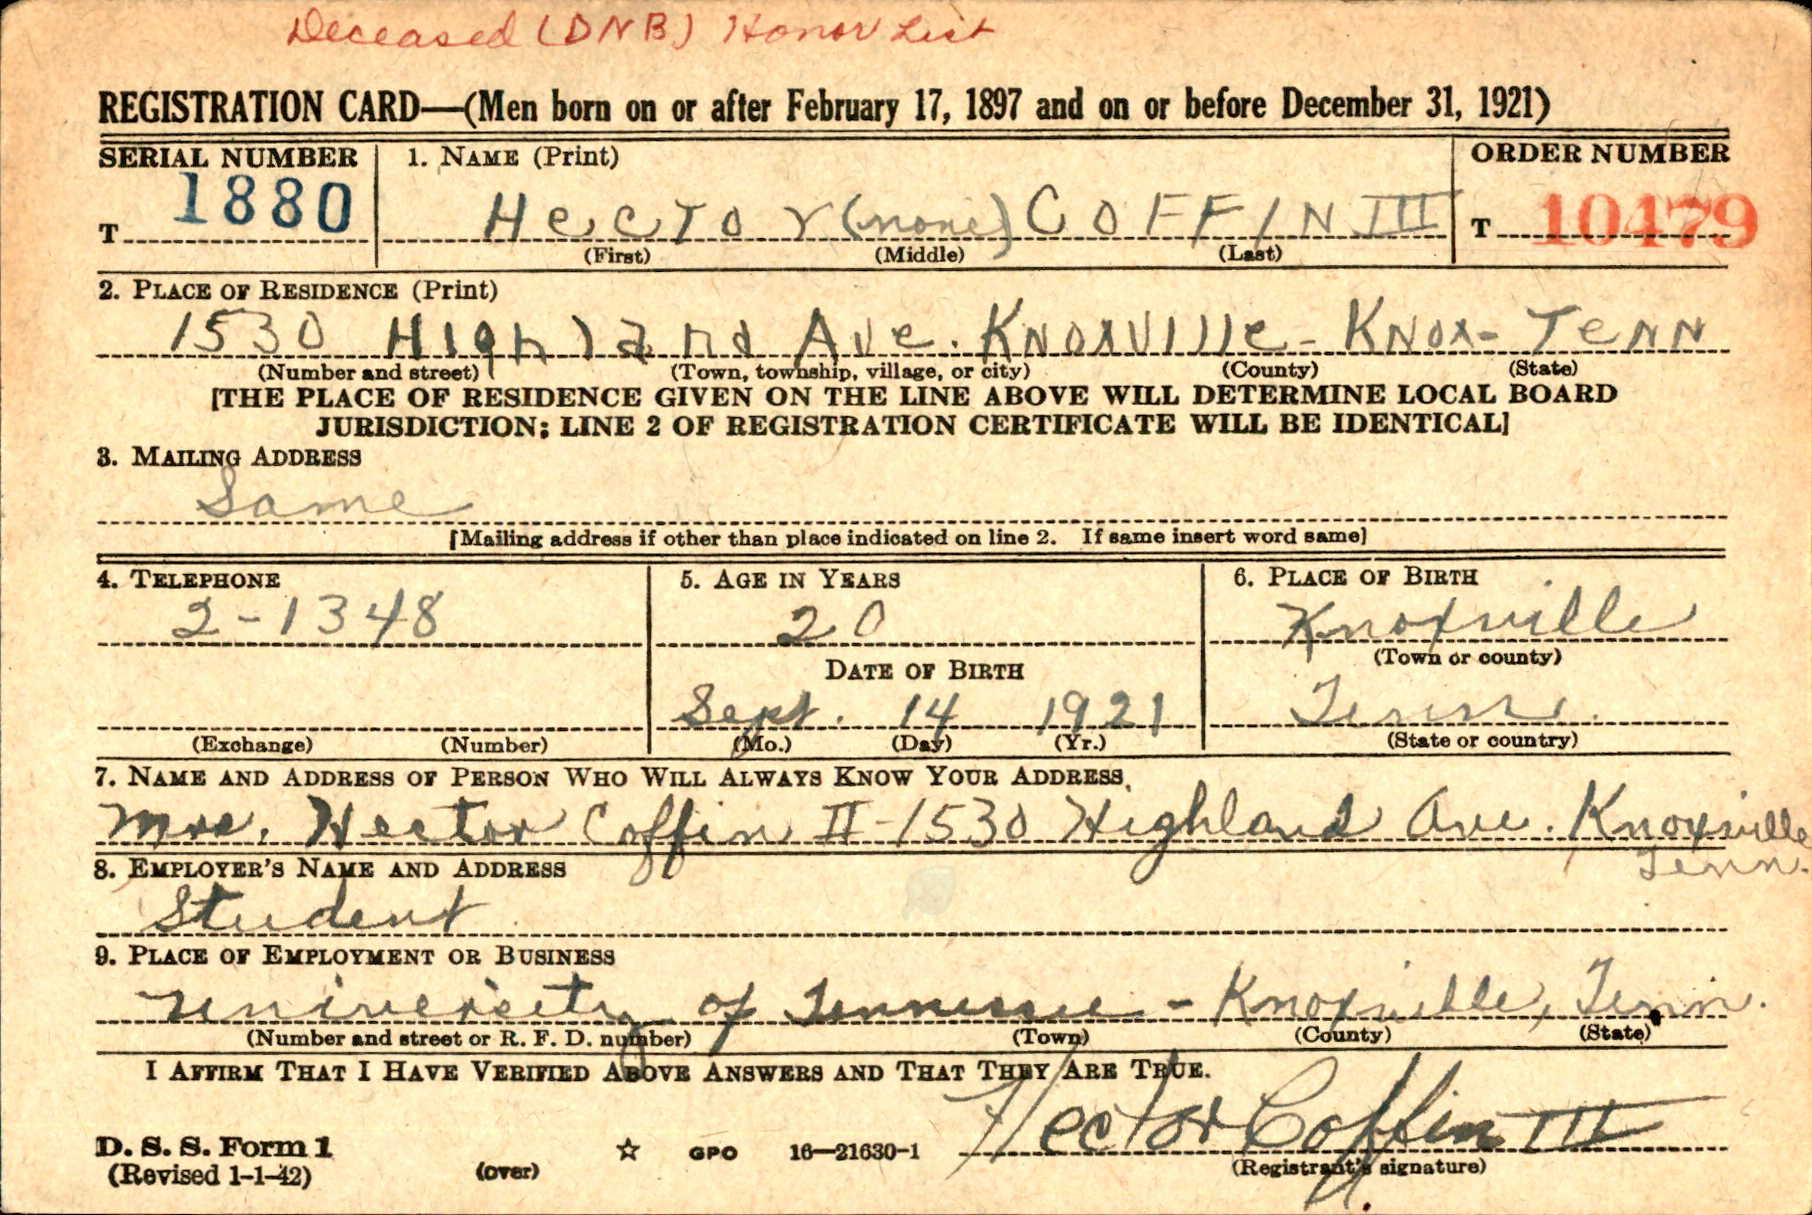 Deceased (DNB) Honor List
REGISTRATION CARD—(Men born on or after February 17, 1897 and on or before December 31, 1921)
SERIAL NUMBER 1. NAME (Print) ORDER NUMBER
T 1880 Hector (none) COFFIN III T 10479
(First) (Middle) (Last)
2. PLACE OF RESIDENCE (Print)
1530 Highland Ave. KNOXVIlle - KNOX - TeNN
(Number and street) (Town, township, village, or city) (County) (State)
[THE PLACE OF RESIDENCE GIVEN ON THE LINE ABOVE WILL DETERMINE LOCAL BOARD
JURISDICTION; LINE 2 OF REGISTRATION CERTIFICATE WILL BE IDENTICAL]
3. MAILING ADDRESS
Same
[Mailing address if other than place indicated on line 2. If same insert word same]
4. TELEPHONE 5. AGE IN YEARS 6. PLACE OF BIRTH
2-1348 20 Knoxville
(Town or county)
DATE OF BIRTH
Sept. 14 1921 Tenn.
(Exchange) (Number) (Mo.) (Day) (Yr.) (State or country)
7. NAME AND ADDRESS OF PERSON WHO WILL ALWAYS KNOW YOUR ADDRESS
Mrs. Hector Coffin II - 1530 Highland Ave. Knoxville
Tenn.
8. EMPLOYER'S NAME AND ADDRESS
Student
9. PLACE OF EMPLOYMENT OR BUSINESS
University of Tennessee - Knoxville, Tenn.
(Number and street or R. F. D. number) (Town) (County) (State)
I AFFIRM THAT I HAVE VERIFIED ABOVE ANSWERS AND THAT THEY ARE TRUE.
Hector Coffin III
D. S. S. Form 1
(Revised 1-1-42) (over) ☆ GPO 16—21630-1 (Registrant's signature)